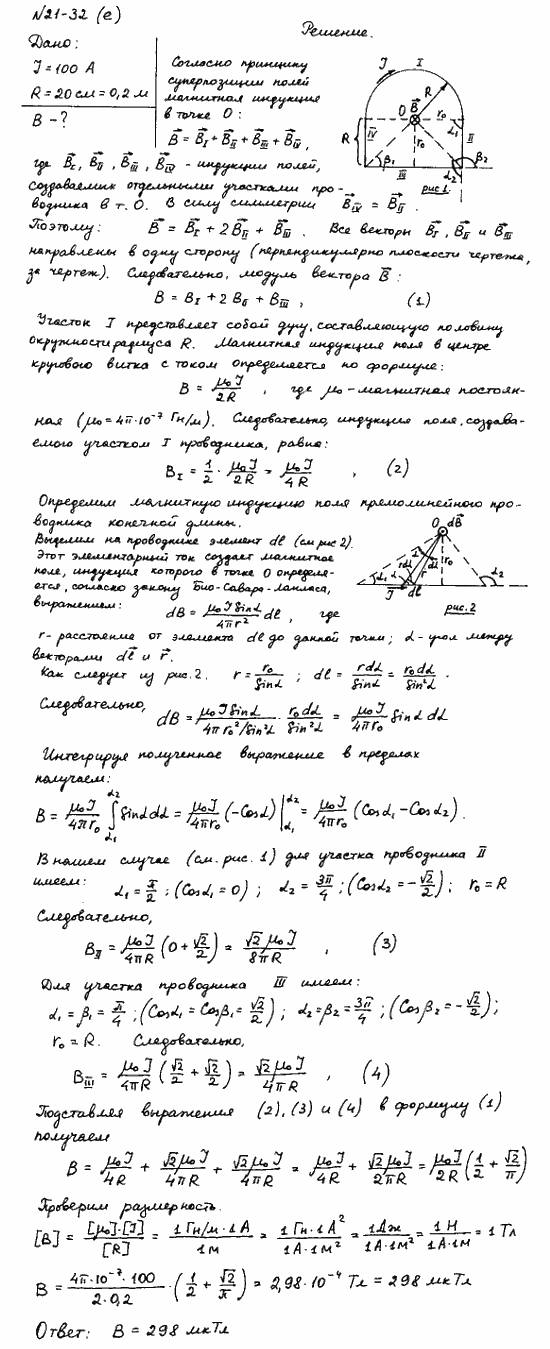 N21-32 (е)
Решение.
Дано:
J = 100 А
R = 20 см = 0,2 м
B - ?
Согласно принципу
суперпозиции полей
магнитная индукция
в точке O:
B⃗ = B⃗_I + B⃗_II + B⃗_III + B⃗_IV,
J I R O B⃗ r₀ α₁ II
R IV r₀ β₁ III α₂ β₂
рис 1.
где B⃗_I, B⃗_II, B⃗_III, B⃗_IV - индукции полей,
создаваемых отдельными участками про-
водника в т. O. В силу симметрии B⃗_IV = B⃗_II.
Поэтому: B⃗ = B⃗_I + 2B⃗_II + B⃗_III. Все векторы B⃗_I, B⃗_II и B⃗_III
направлены в одну сторону (перпендикулярно плоскости чертежа,
за чертеж). Следовательно, модуль вектора B⃗:
B = B_I + 2 B_II + B_III, (1)
Участок I представляет собой дугу, составляющую половину
окружности радиуса R. Магнитная индукция поля в центре
кругового витка с током определяется по формуле:
B = μ₀J/2R, где μ₀ - магнитная постоян-
ная (μ₀ = 4π·10⁻⁷ Гн/м). Следовательно, индукция поля, создава-
емого участком I проводника, равна:
B_I = 1/2 · μ₀J/2R = μ₀J/4R, (2)
Определим магнитную индукцию поля прямолинейного про-
водника конечной длины.
Выделим на проводнике элемент dl (см рис 2).
Этот элементарный ток создает магнитное
поле, индукция которого в точке O определя-
ется, согласно закону Био-Савара-Лапласа,
выражением: dB = μ₀J sinα/4πr² dl, где
O dB⃗ r₀ r dα rdα α₁ α J dl α₂
рис. 2
r - расстояние от элемента dl до данной точки; α - угол между
векторами dl⃗ и r⃗.
Как следует из рис. 2. r = r₀/sinα; dl = rdα/sinα = r₀dα/sin²α.
Следовательно, dB = μ₀J sinα/4π r₀²/sin²α · r₀dα/sin²α = μ₀J/4πr₀ sinα dα
Интегрируя полученное выражение в пределах
получаем:
B = μ₀J/4πr₀ ∫_α₁^α₂ sinα dα = μ₀J/4πr₀ (-Cosα)|_α₁^α₂ = μ₀J/4πr₀ (Cosα₁ - Cosα₂).
В нашем случае (см. рис. 1) для участка проводника II
имеем: α₁ = π/2; (Cosα₁ = 0); α₂ = 3π/4; (Cosα₂ = -√2/2); r₀ = R
Следовательно,
B_II = μ₀J/4πR (0 + √2/2) = √2 μ₀J/8πR, (3)
Для участка проводника III имеем:
α₁ = β₁ = π/4; (Cosα₁ = Cosβ₁ = √2/2); α₂ = β₂ = 3π/4; (Cosβ₂ = -√2/2);
r₀ = R. Следовательно,
B_III = μ₀J/4πR (√2/2 + √2/2) = √2 μ₀J/4πR, (4)
Подставляя выражения (2), (3) и (4) в формулу (1)
получаем
B = μ₀J/4R + √2μ₀J/4πR + √2μ₀J/4πR = μ₀J/4R + √2μ₀J/2πR = μ₀J/2R (1/2 + √2/π)
Проверим размерность.
[B] = [μ₀]·[J]/[R] = 1 Гн/м · 1 А/1 м = 1 Гн · 1 А²/1 А · 1 м² = 1 Дж/1 А · 1 м² = 1 Н/1 А · 1 м = 1 Тл
B = 4π·10⁻⁷·100/2·0,2 · (1/2 + √2/π) = 2,98·10⁻⁴ Тл = 298 мкТл
Ответ: B = 298 мкТл